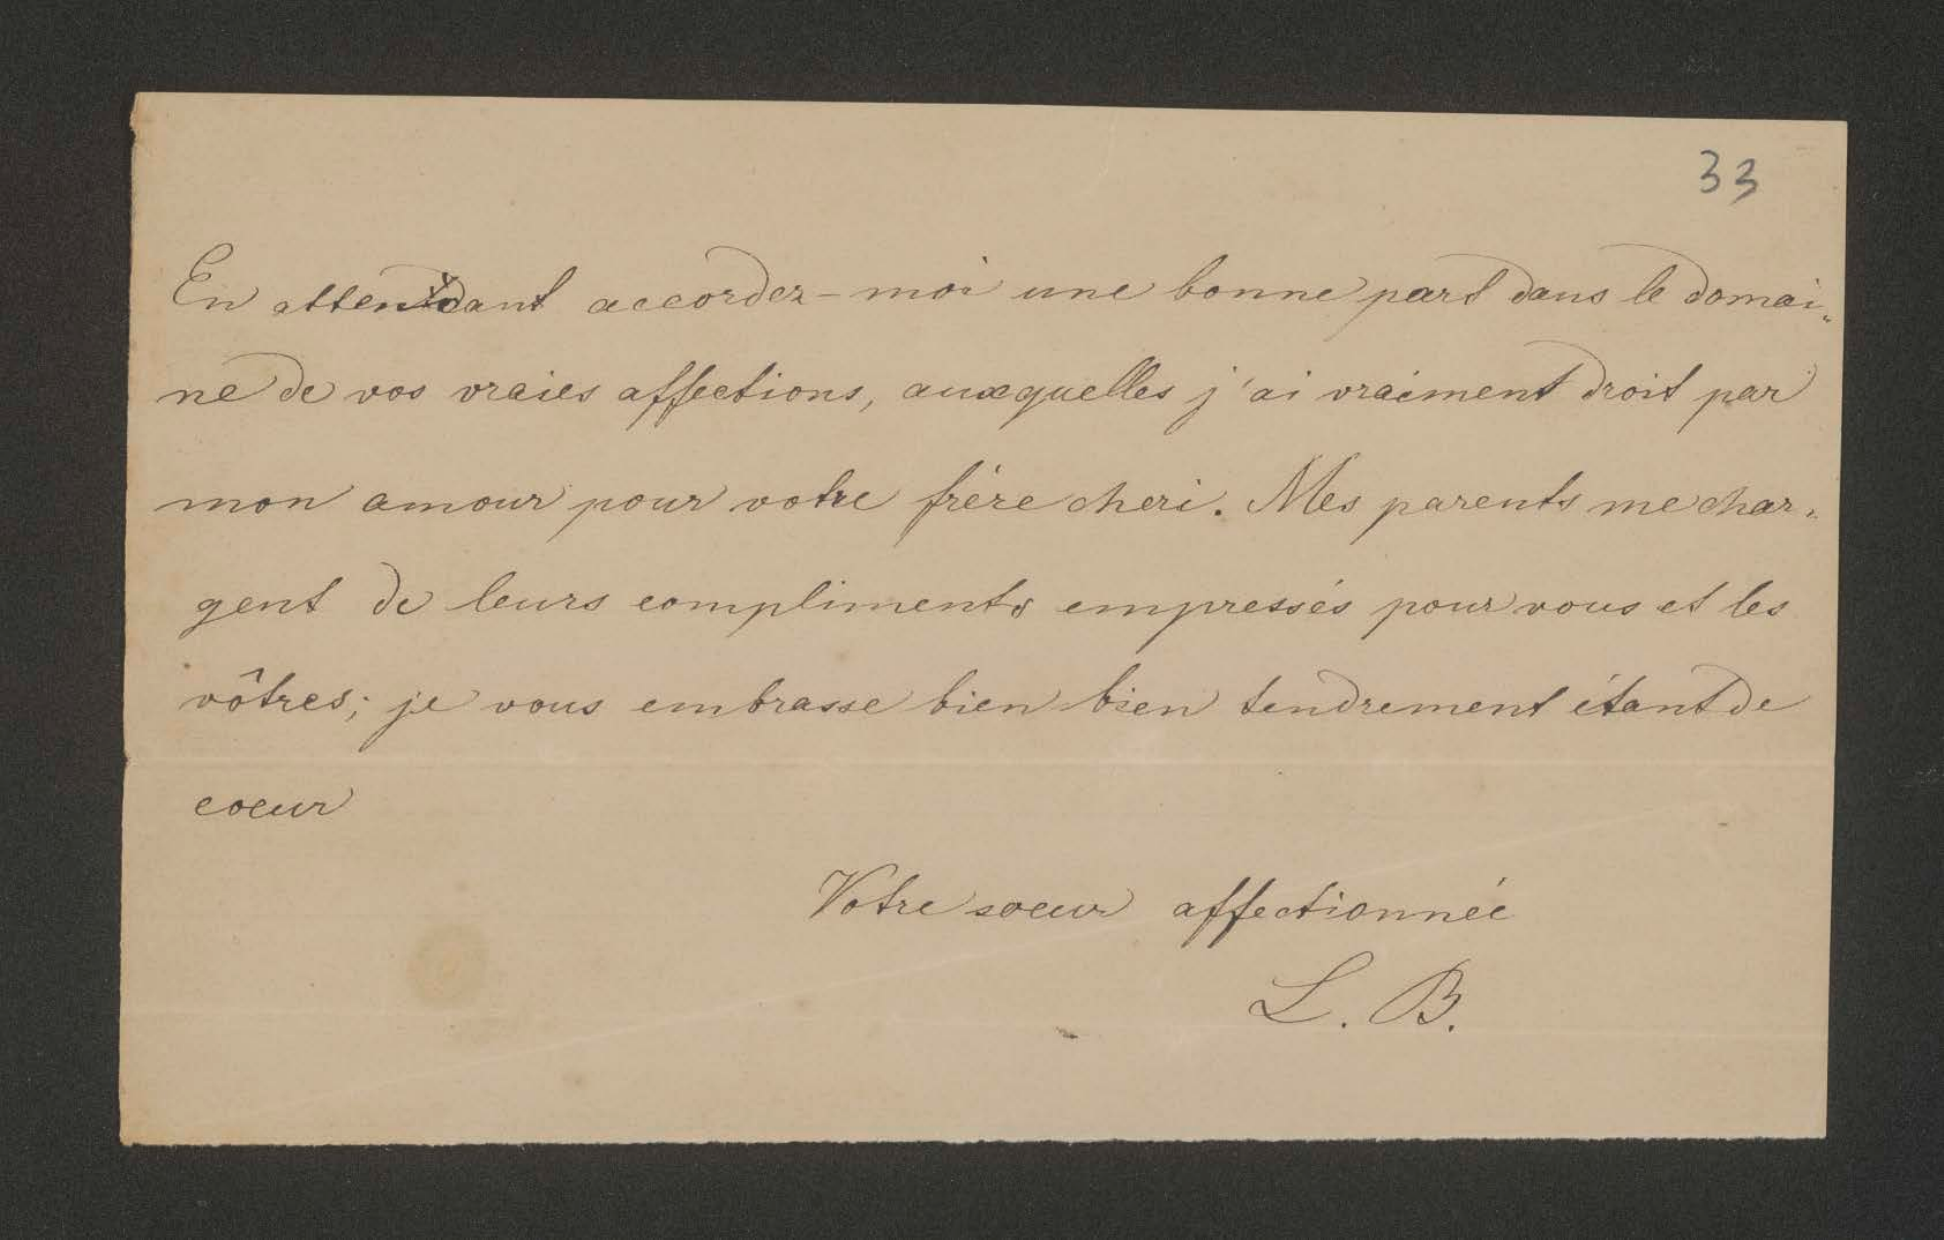 33
En attendant accordez-moi une bonne part dans le domai-
ne de vos vraies affections, auxquelles j'ai vraiment droit par
mon amour pour votre frère cheri. Mes parents me char-
gent de leurs compliments empressés pour vous et les
vôtres; je vous embrasse bien bien tendrement étant de
coeur
Votre soeur affectionnée
L. B.